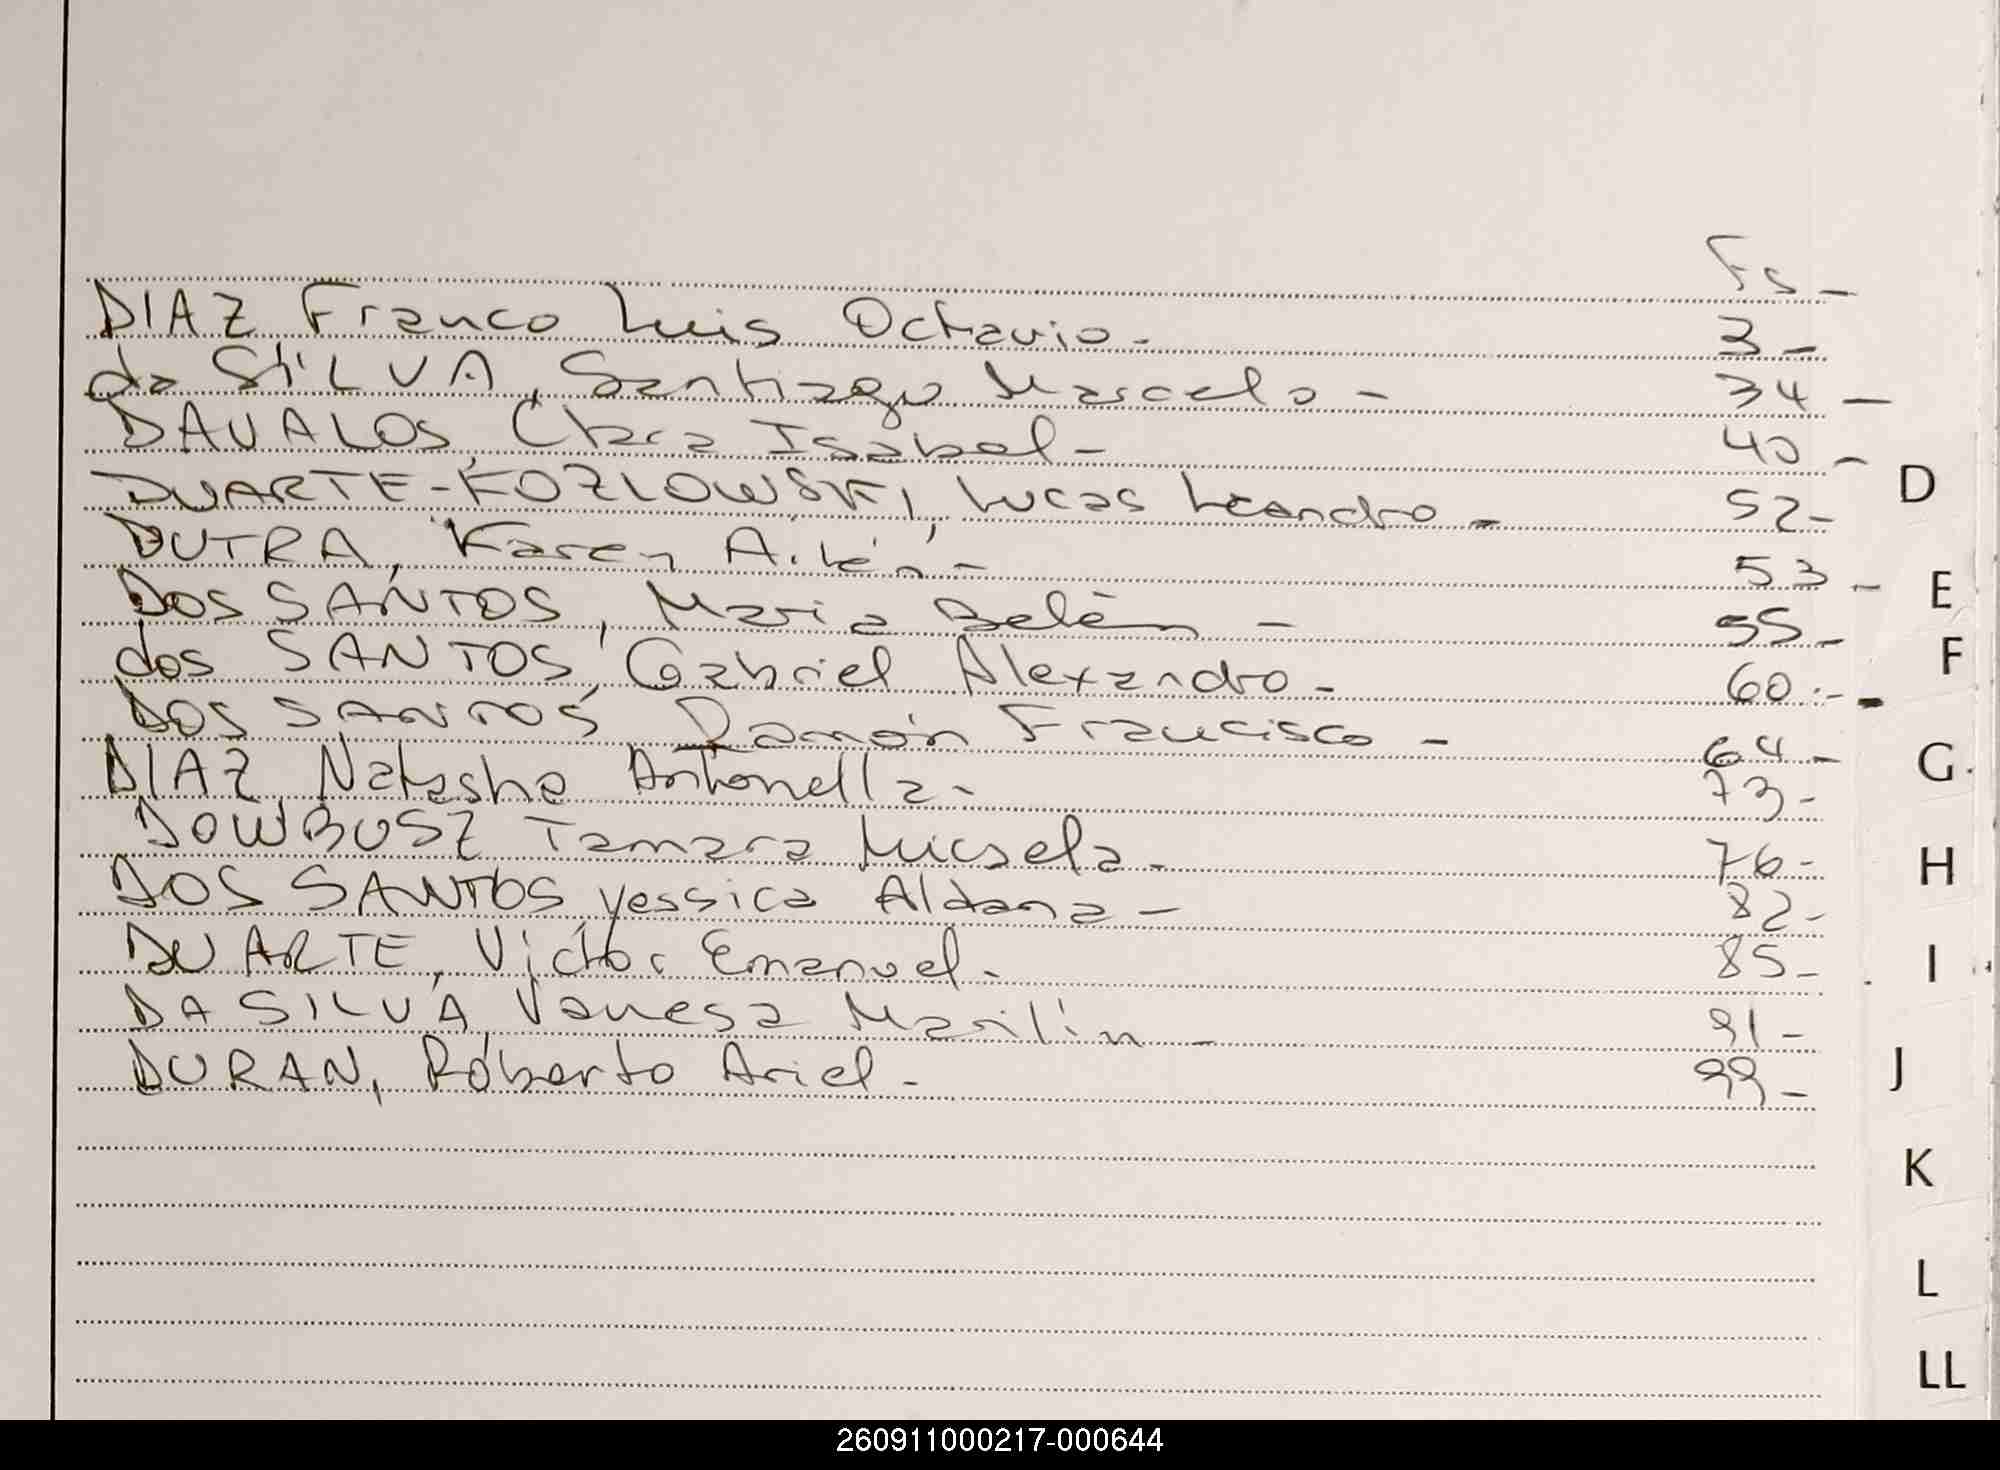 Fs -
DIAZ Franco Luis Octavio - 3 -
da SILVA, Santiago Marcelo - 34 -
DAVALOS, Clara Isabel - 40 -
DUARTE-KOZLOWSKI, Lucas Leandro - 52 -
D
DUTRA, Karen Ailén - 53 -
E
DOS SANTOS, Maria Belén - 55 -
dos SANTOS, Gabriel Alexandro - 60 -
F
DOS SANTOS, Ramón Francisco - 64 -
G
DIAZ, Natasha Antonella - 73 -
DOWBUSZ Tamara Micaela - 76 -
H
DOS SANTOS, Yessica Aldana - 82 -
DUARTE, Victor Emanuel - 85 -
I
DA SILVA, Vanesa Marilín - 91 -
DURAN, Roberto Ariel - 99 -
J
K
L
LL
260911000217-000644